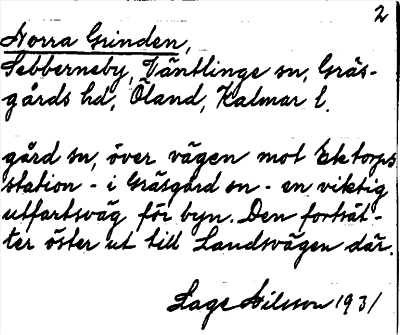 2
Norra Grinden,
Sebberneby, Väntlinge sn, Gräs-
gårds hd, Öland, Kalmar l.
gård sn, över vägen mot Ektorps
station - i Gräsgård sn - en viktig
utfartsväg för byn. Den fortsät-
ter öster ut till Landsvägen där.
Sage Nilsson 1931